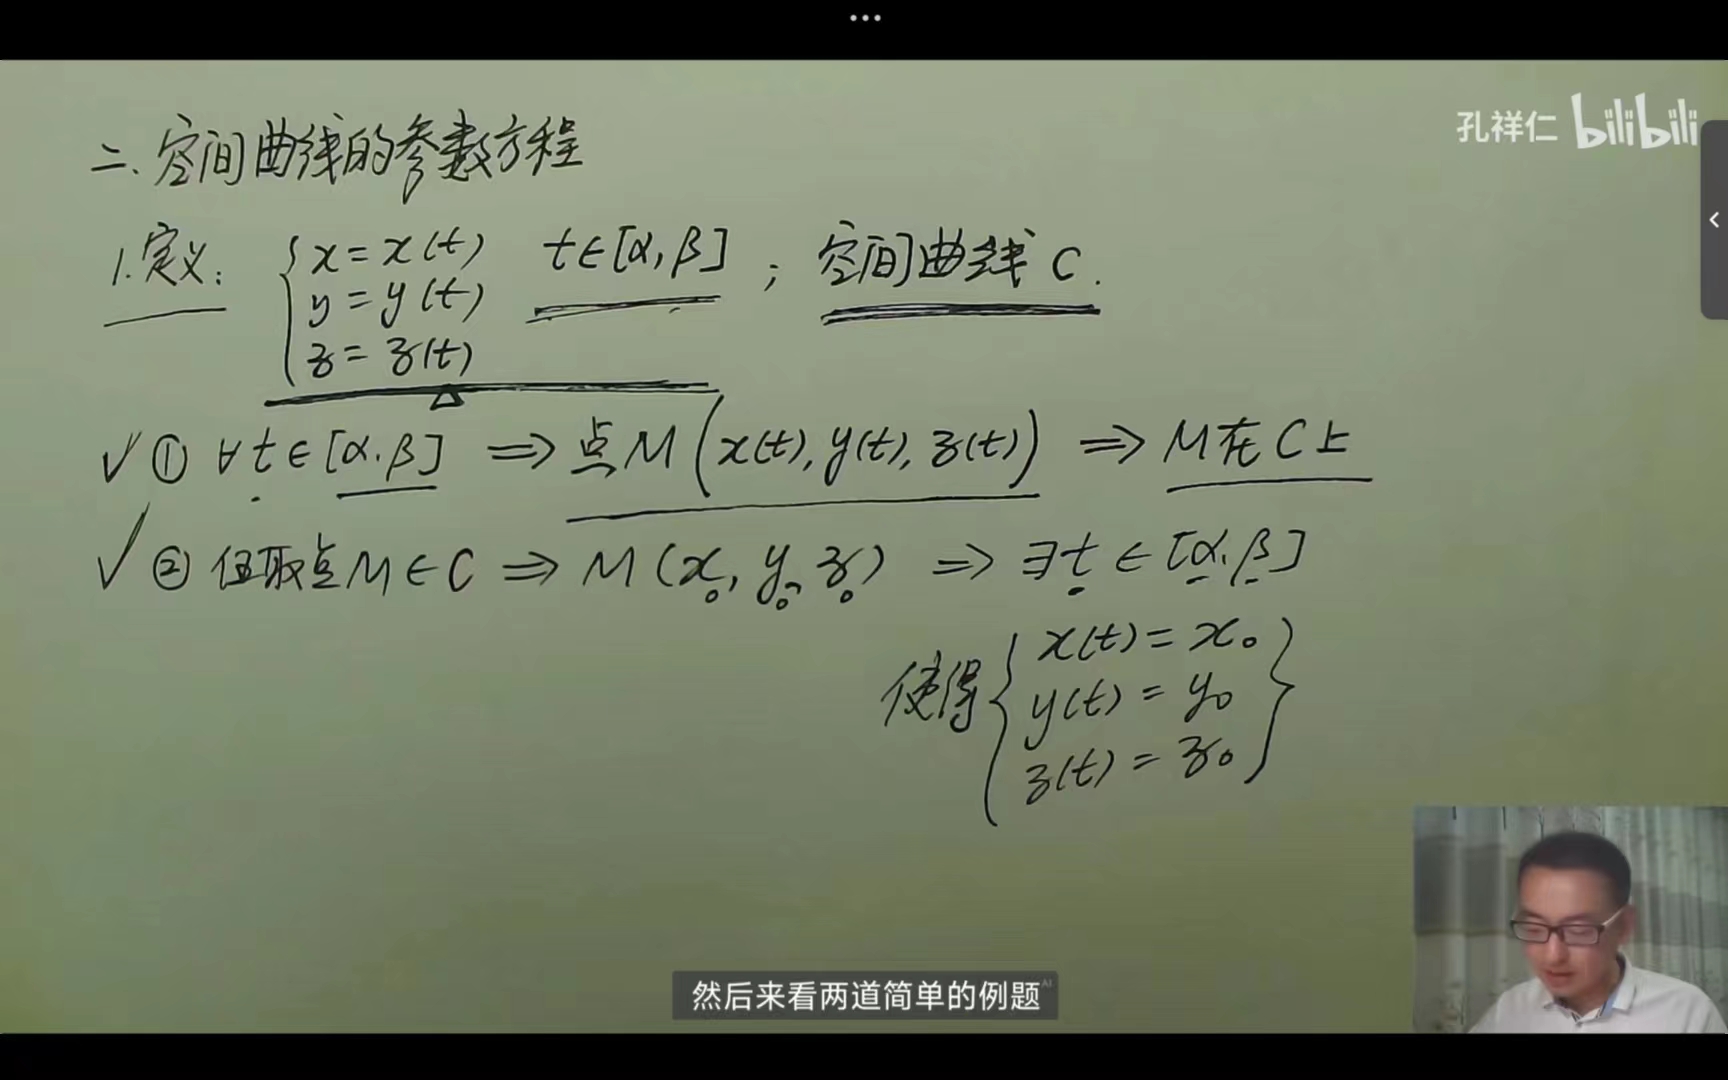 •••
孔祥仁 bilibili
二、空间曲线的参数方程
1.定义: { x = x(t)   t∈[α,β] ; 空间曲线 C.
y = y(t)
z = z(t)
✓ ① ∀t∈[α.β] ⇒ 点M(x(t), y(t), z(t)) ⇒ M在C上
✓ ② 任取点M∈C ⇒ M(x₀, y₀, z₀) ⇒ ∃t∈[α.β]
使得 { x(t) = x₀ }
y(t) = y₀
z(t) = z₀
然后来看两道简单的例题 AI